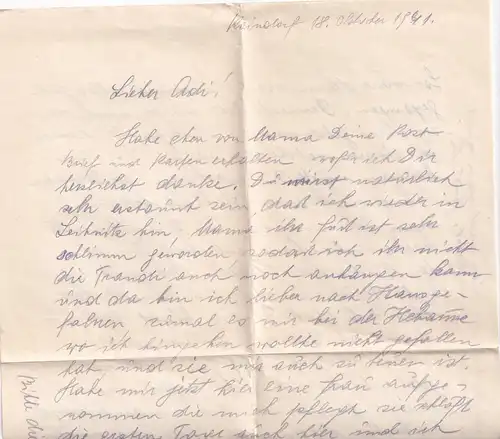 Kaindorf 18. Oktober 1941.
Lieber Adi!
Habe eben von Mama Deine Post
Brief und Karten erhalten wofür ich Dir
herzlichst danke. Du wirst natürlich
sehr erstaunt sein, daß ich wieder in
Leibnitz bin, Mama ihr Fuß ist sehr
schlimm geworden sodaß ich ihr nicht
die Traudi auch noch anhängen kann
und da bin ich lieber nach Hausge-
fahren zumal es mir bei der Hebamme
wo ich hingehen wollte nicht gefallen
hat, und sie mir auch zu teuer ist.
Habe mir jetzt hier eine Frau aufge-
nommen die mich pflegt sie schläft
die ersten Tage auch hier und ich
Bitte die